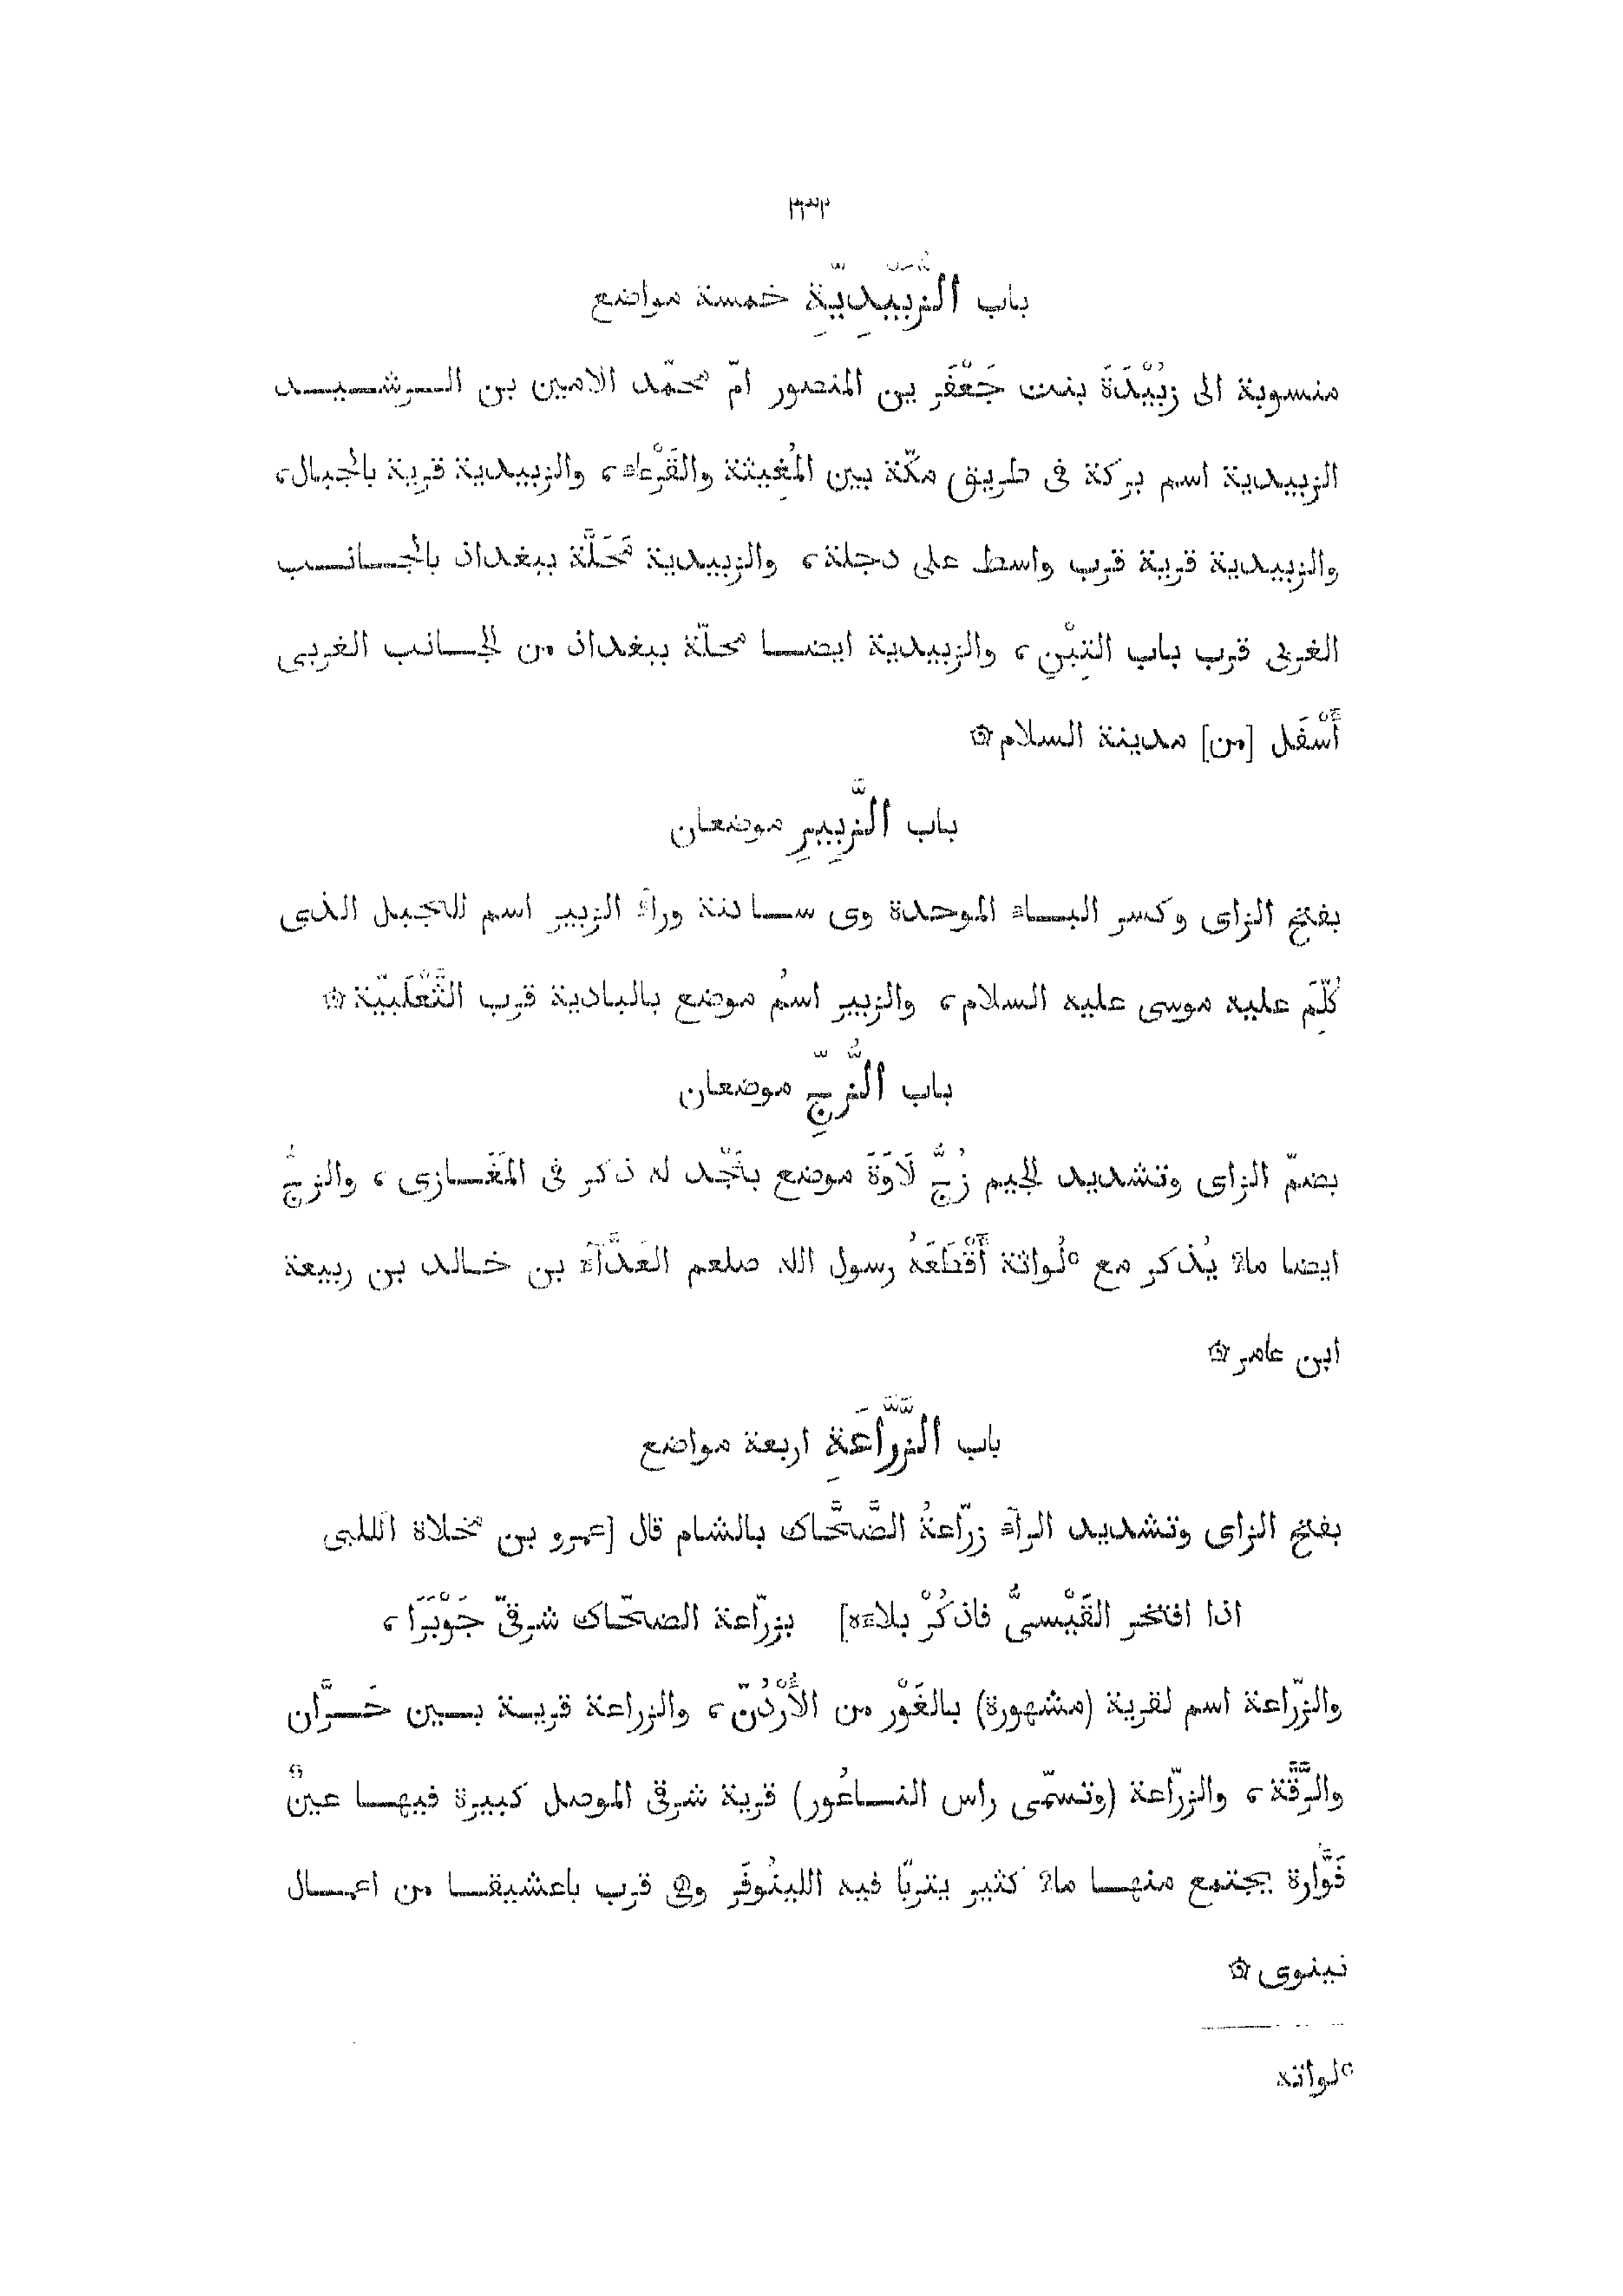 ٢٣٢
باب الزُّبَيْدِيّةِ خمسة مواضع
منسوبة الى زُبَيْدَةَ بنت جَعْفَر بن المنصور امّ محمّد الامين بن الرشيد
الزبيدية اسم بركة فى طريق مكّة بين المُغِيثة والقَرْعاء، والزبيدية قرية بالجبال،
والزبيدية قرية قرب واسط على دجلة، والزبيدية مَحَلَّة ببغداذ بالجانب
الغربى قرب باب التِبْنِ، والزبيدية ايضا محلّة ببغداذ من الجانب الغربى
أَسْفَل [من] مدينة السلام۞
باب الزَّبِيرِ موضعان
بفتح الزاى وكسر الباء الموحدة وى ساكنة وراء الزبير اسم للجبل الذى
كُلِّمَ عليه موسى عليه السلام، والزبير اسمُ موضع بالبادية قرب الثَّعْلَبيّة۞
باب الزُّجِّ موضعان
بضمّ الزاى وتشديد الجيم زُجُّ لَاوَةَ موضع بنَجْد له ذكر فى المَغَازى، والزجُّ
ايضا ماء يُذكر مع ᶜلُواثة أَقْطَعَهُ رسول الله صلعم العَدَّآءَ بن خالد بن ربيعة
ابن عامر۞
باب الزَّرَّاعَةِ اربعة مواضع
بفتح الزاى وتشديد الرآء زرّاعةُ الضَّحَّاك بالشام قال [عمرو بن مخلاة الكلبى
اذا افتخر القَيْسىُّ فاذكُرْ بلاءه] بزرّاعة الضحّاك شرقىّ جَوْبَرَا،
والزرّاعة اسم لقرية (مشهورة) بالغَوْر من الأُرْدُنّ، والزراعة قرية بين حَرَّان
والرَّقَّة، والزرّاعة (وتسمّى راس الناعُور) قرية شرقى الموصل كبيرة فيها عينٌ
فَوَّارة يجتمع منها ماء كثير يتربّا فيه اللينُوفَر وهى قرب باعشيقا من اعمال
نينوى۞
ᶜلواته